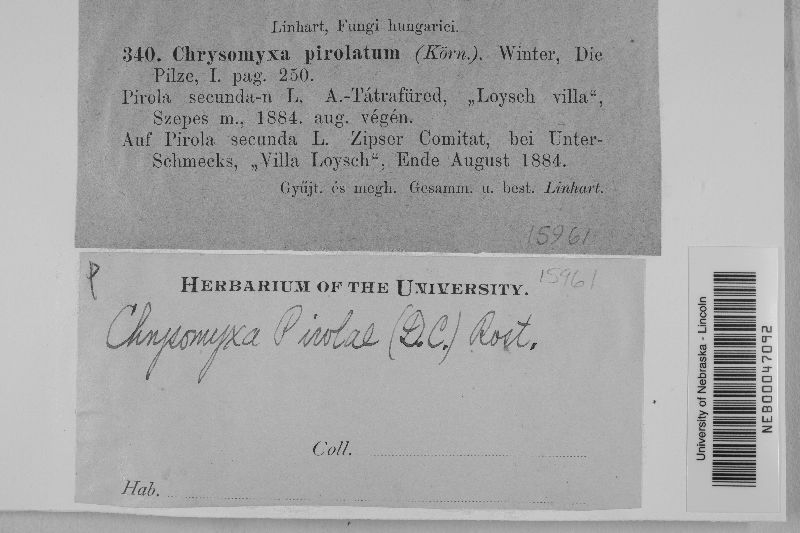 Linhart, Fungi hungarici.
340. Chrysomyxa pirolatum (Körn.). Winter, Die
Pilze, I. pag. 250.
Pirola secunda-n L. A.-Tátrafüred, „Loysch villa“,
Szepes m., 1884. aug. végén.
Auf Pirola secunda L. Zipser Comitat, bei Unter-
Schmecks, „Villa Loysch“, Ende August 1884.
Gyűjt. és megh. Gesamm. u. best. Linhart.
15961
P
15961
HERBARIUM OF THE UNIVERSITY.
Chrysomyxa Pirolae (D.C.) Rost.
Coll.
Hab.
University of Nebraska - Lincoln
NEB00047092